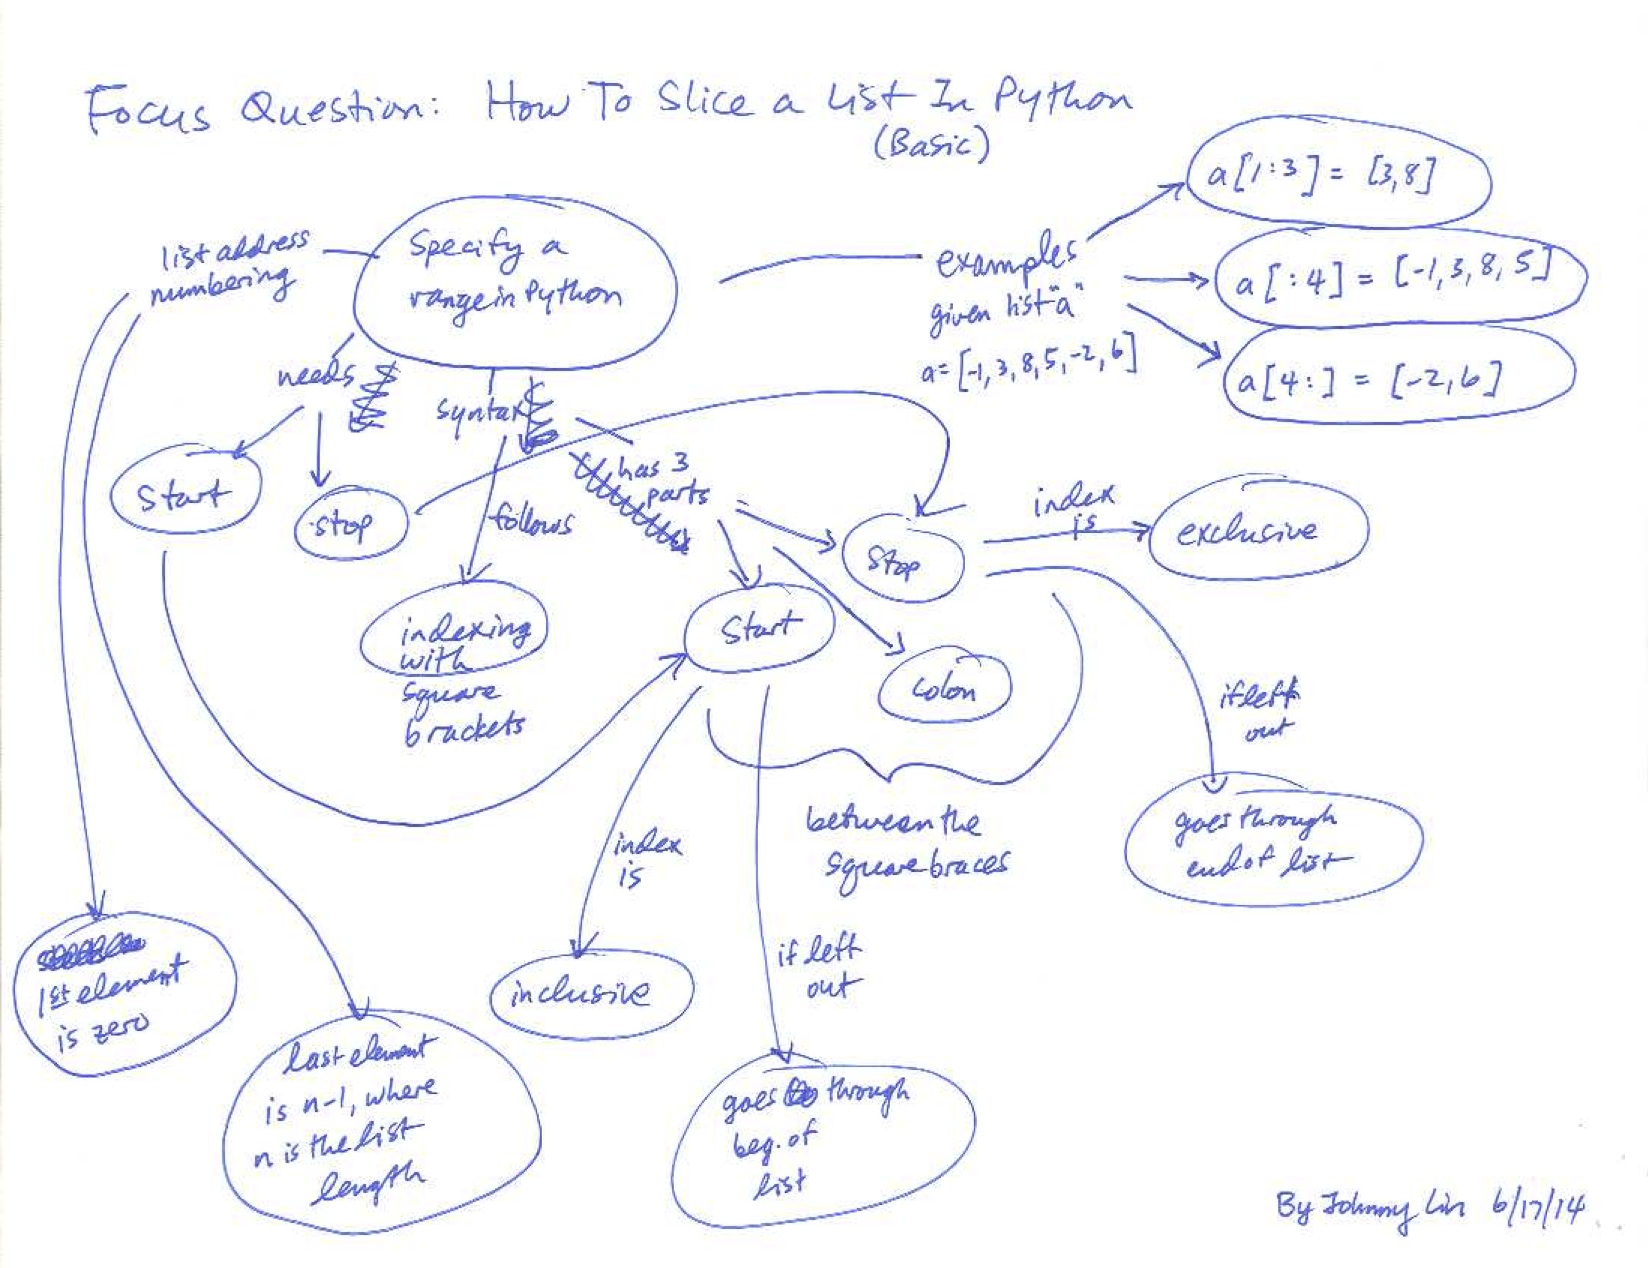 Focus Question: How To Slice a List In Python
(Basic)
a[1:3] = [3,8]
list address
numbering
Specify a
range in Python
examples
given list "a"
a = [-1, 3, 8, 5, -2, 6]
a[:4] = [-1, 3, 8, 5]
a[4:] = [-2, 6]
needs
syntax
has 3
parts
Start
stop
follows
Stop
index
is
exclusive
indexing
with
square
brackets
Start
colon
if left
out
between the
square braces
goes through
end of list
index
is
if left
out
1st element
is zero
inclusive
last element
is n-1, where
n is the list
length
goes through
beg. of
list
By Johnny Lin 6/17/14